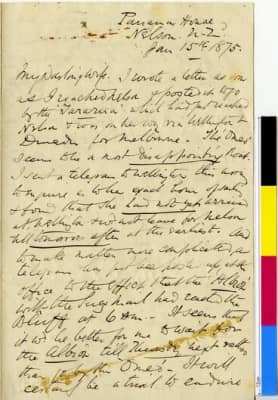 Panama House
Nelson N.Z.
Jan 15th 1875.
My Darling Wife. I wrote a letter as soon
as I reached Nelson & posted it to go
by the "Taranaki" which had just reached
Nelson & was on her way via Wellington &
Dunedin for Melbourne. The
seems to be a most disappointing Boat.
I sent a telegram to Wellington this noon
to inquire is to the exact hour of
& found that she had not yet arrived
at Wellington & wd not leave for Nelson
till tomorrow after at the earliest. And
to make matters more complicated a
telegram has just been posted up at the
office to the effect that the Albion
with the Suez mail had reached the
Bluff at 6 a.m. It seems that
it wd be better for me to wait for
the Albion till Thursday next rather
than go by the It will
certainly be a trial to endure